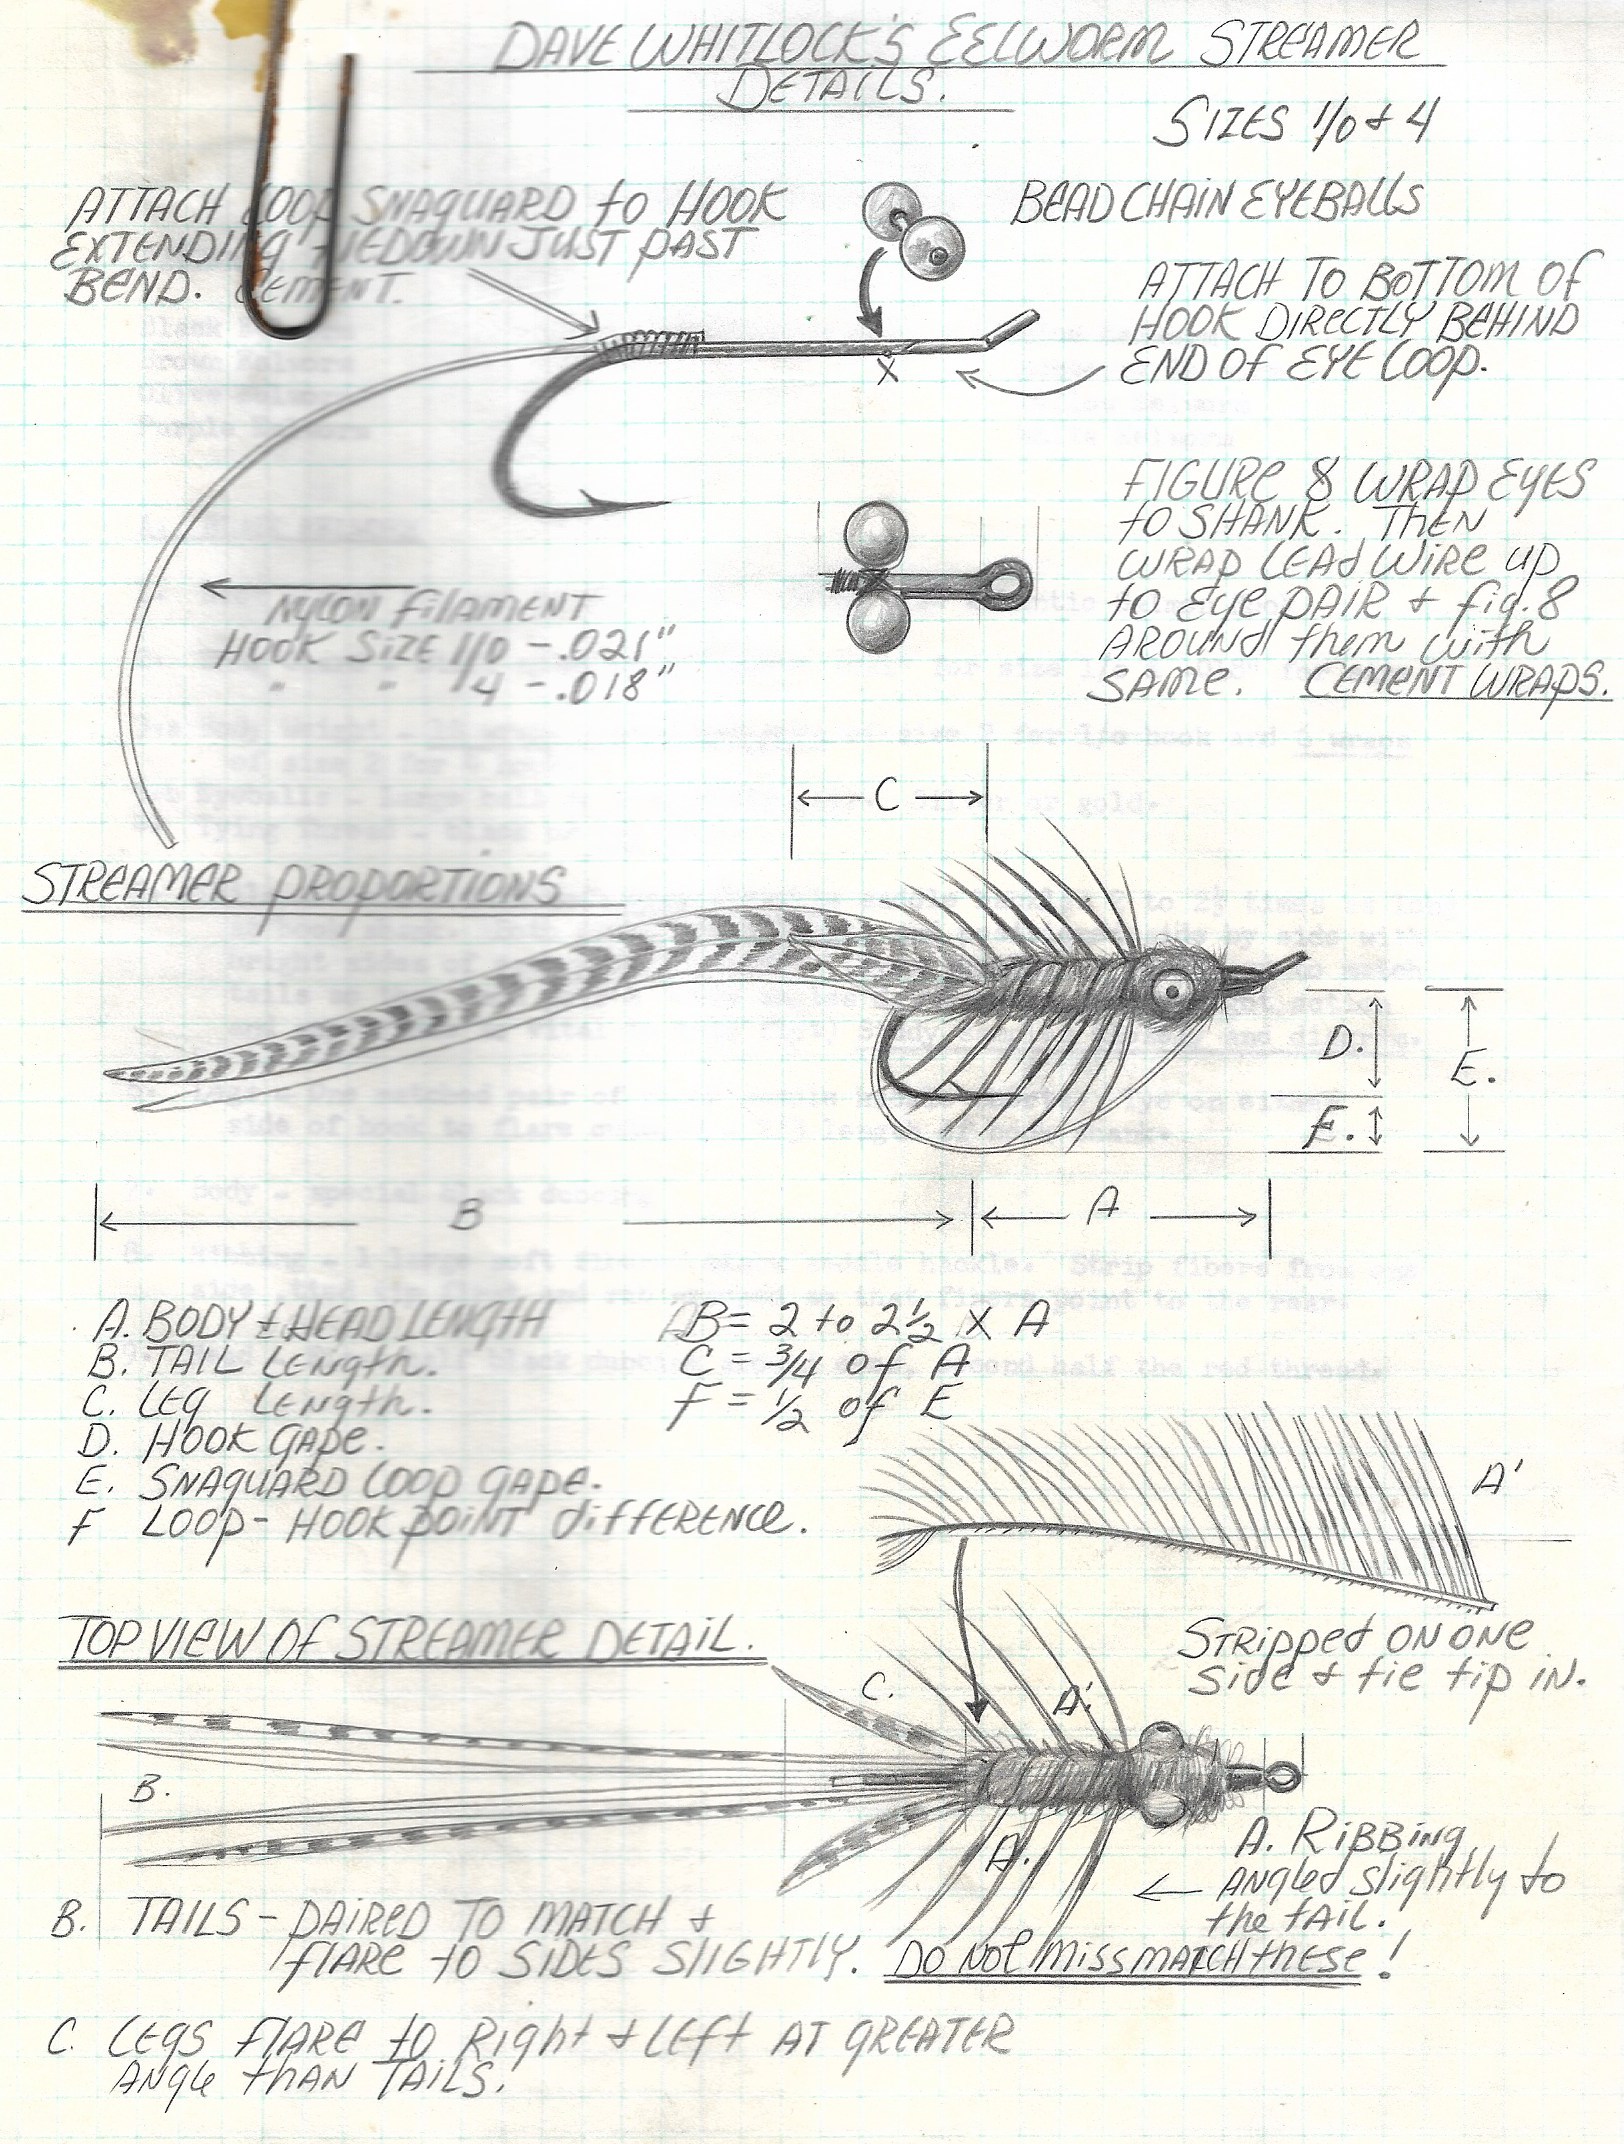 DAVE WHITLOCK'S EELWORM STREAMER
DETAILS.
SIZES 1/0 & 4
ATTACH LOOP SNAGUARD to HOOK
EXTENDING TIEDOWN JUST PAST
BEND. CEMENT.
BEAD CHAIN EYEBALLS
ATTACH TO BOTTOM OF
HOOK DIRECTLY BEHIND
END OF EYE LOOP.
X
FIGURE 8 WRAP EYES
to SHANK. THEN
WRAP LEAD WIRE up
to Eye PAIR & fig. 8
AROUND them with
SAME. CEMENT WRAPS.
NYLON FILAMENT
HOOK SIZE 1/0 - .021"
" " 1/4 - .018"
C
STREAMER PROPORTIONS
D.
E.
F.
B
A
A. BODY & HEAD LENGTH
B. TAIL LENGTH.
C. LEG LENGTH.
D. HOOK GAPE.
E. SNAGUARD LOOP GAPE.
F LOOP - HOOK POINT DIFFERENCE.
B = 2 to 2 1/2 X A
C = 3/4 of A
F = 1/2 of E
A'
STRIPPED ON ONE
side & tie tip in.
TOP VIEW OF STREAMER DETAIL.
C.
A'.
B.
A.
A. RIBBING
ANGLED slightly to
the tail.
B. TAILS - PAIRED TO MATCH &
FLARE to SIDES SLIGHTLY. DO NOT MISSMATCH these!
C. LEGS FLARE to Right & LEFT AT GREATER
ANGLE than TAILS.